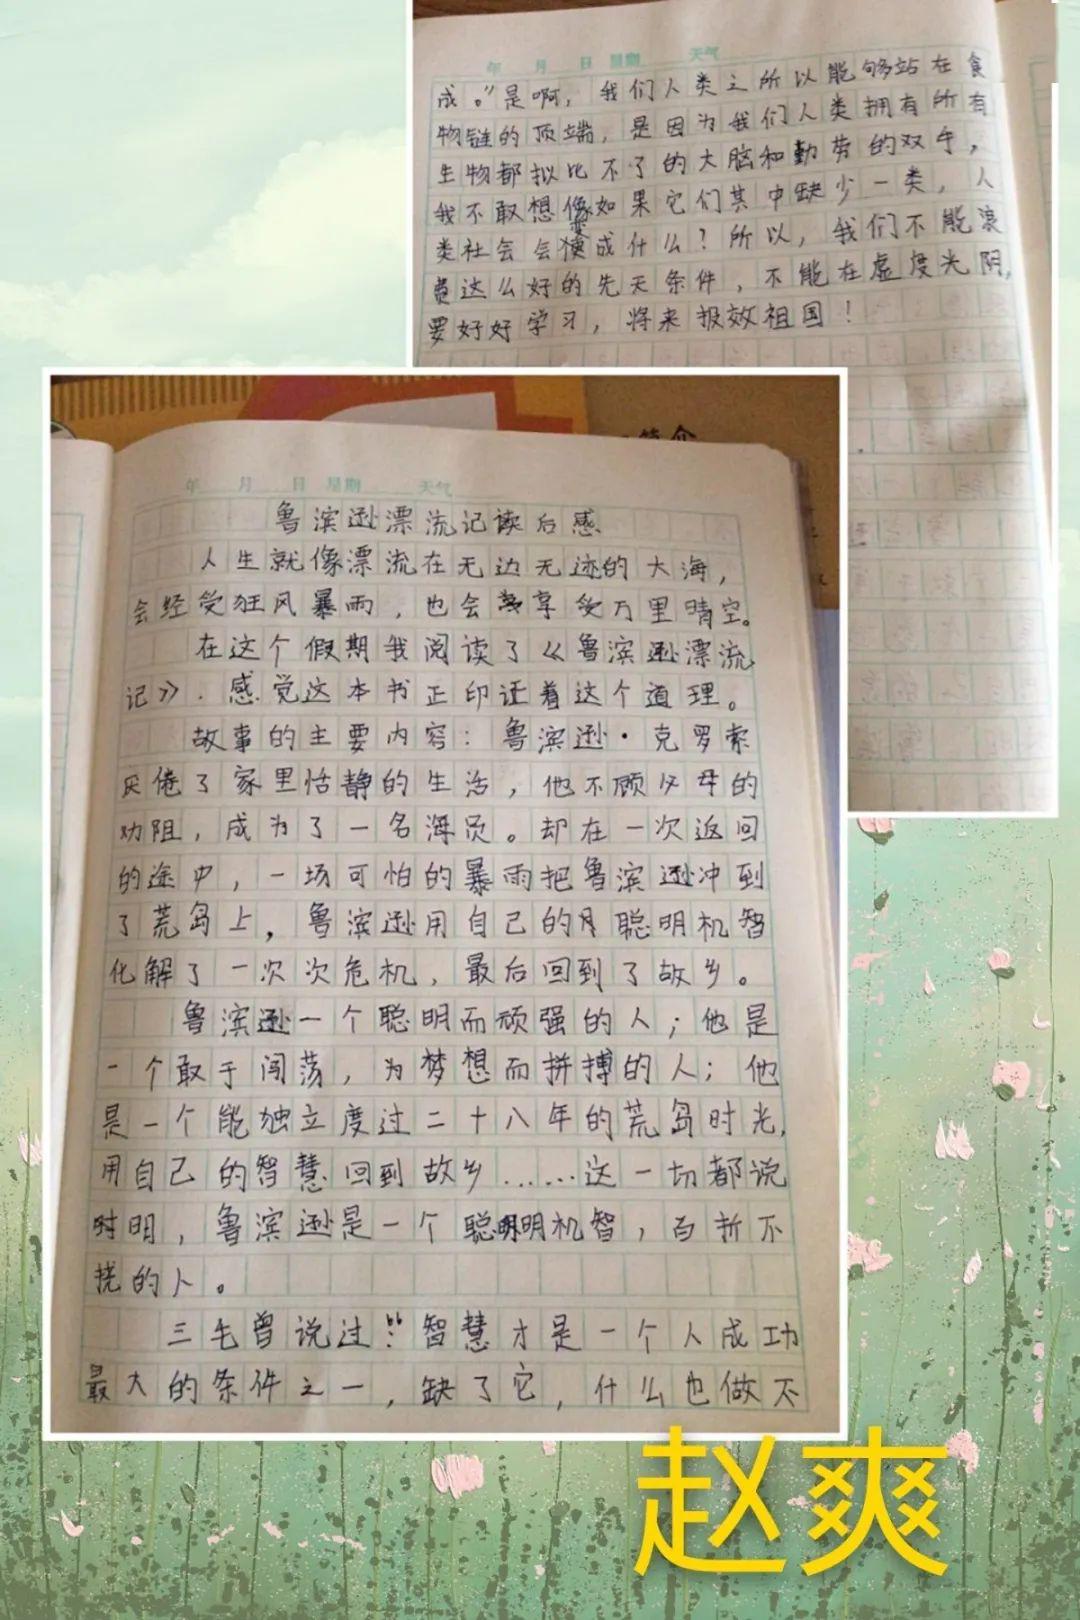 年 月 日 星期 天气
鲁滨逊漂流记读后感
人生就像漂流在无边无迹的大海，
会经受狂风暴雨，也会享受万里晴空。
在这个假期我阅读了《鲁滨逊漂流
记》.感觉这本书正印证着这个道理。
故事的主要内容：鲁滨逊·克罗索
厌倦了家里恬静的生活，他不顾父母的
劝阻，成为了一名海员。却在一次返回
的途中，一场可怕的暴雨把鲁滨逊冲到
了荒岛上，鲁滨逊用自己的聪明机智
化解了一次次危机，最后回到了故乡。
鲁滨逊一个聪明而顽强的人；他是
一个敢于闯荡，为梦想而拼搏的人；他
是一个能独立度过二十八年的荒岛时光，
用自己的智慧回到故乡……这一切都说
明，鲁滨逊是一个聪明机智，百折不
挠的人。
三毛曾说过："智慧才是一个人成功
最大的条件之一，缺了它，什么也做不
年 月 日 星期 天气
成。"是啊，我们人类之所以能够站在食
物链的顶端，是因为我们人类拥有所有
生物都拟比不了的大脑和勤劳的双手，
我不敢想像如果它们其中缺少一类，人
类社会会变成什么？所以，我们不能浪
费这么好的先天条件，不能在虚度光阴，
要好好学习，将来报效祖国！
简介
赵爽